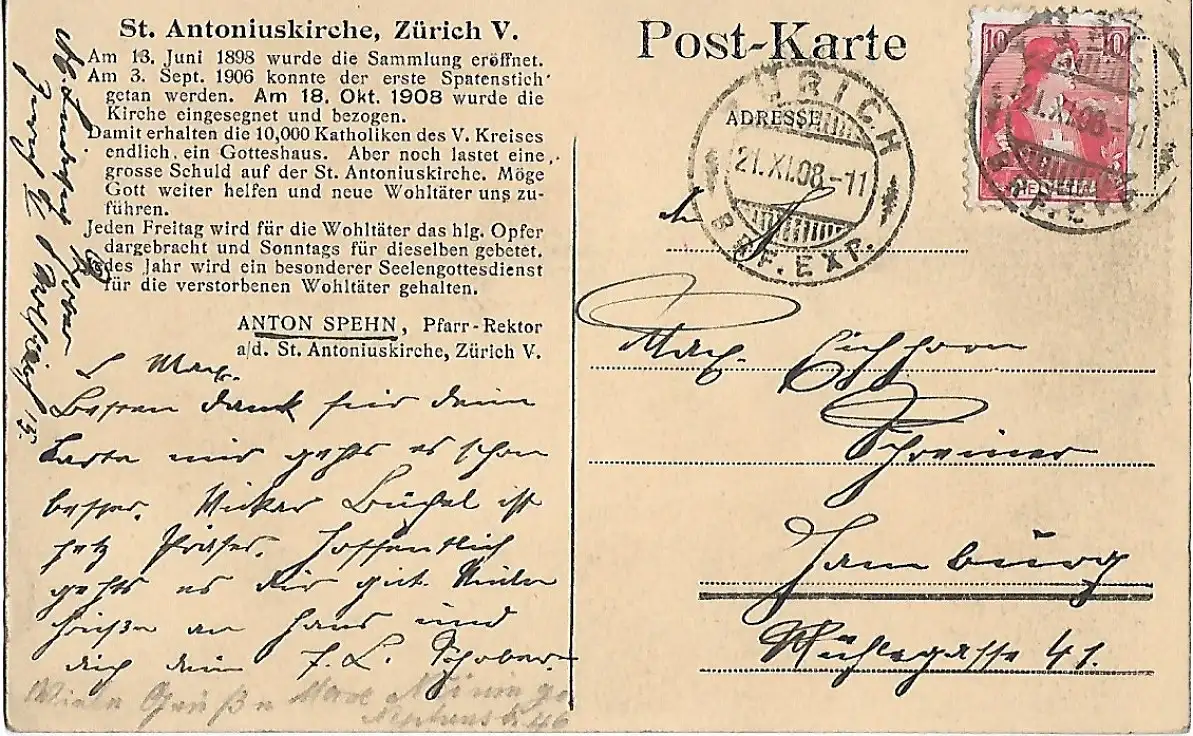 St. Antoniuskirche, Zürich V.
Am 13. Juni 1898 wurde die Sammlung eröffnet.
Am 3. Sept. 1906 konnte der erste Spatenstich
getan werden. Am 18. Okt. 1908 wurde die
Kirche eingesegnet und bezogen.
Damit erhalten die 10,000 Katholiken des V. Kreises
endlich ein Gotteshaus. Aber noch lastet eine
grosse Schuld auf der St. Antoniuskirche. Möge
Gott weiter helfen und neue Wohltäter uns zu-
führen.
Jeden Freitag wird für die Wohltäter das hlg. Opfer
dargebracht und Sonntags für dieselben gebetet.
Jedes Jahr wird ein besonderer Seelengottesdienst
für die verstorbenen Wohltäter gehalten.
ANTON SPEHN, Pfarr-Rektor
a/d. St. Antoniuskirche, Zürich V.
L Max.
Besten Dank für dein
Karte mir gehts es schon
besser. Vickar Büchel ist
jetz Präses. Hoffentlich
gehts es dir gut. Viele
Grüße an Hans und
dich dein F. L. Schober.
Viele Grüße Max
Post-Karte
ADRESSE
ZÜRICH
21.XI.08.-11
BRF.EXP.
10 10
HELVETIA
21.XI.08-11
BRF.EXP.
An
Max. Eichhorn
Schreiner
Hamburg
Mühlegasse 41.